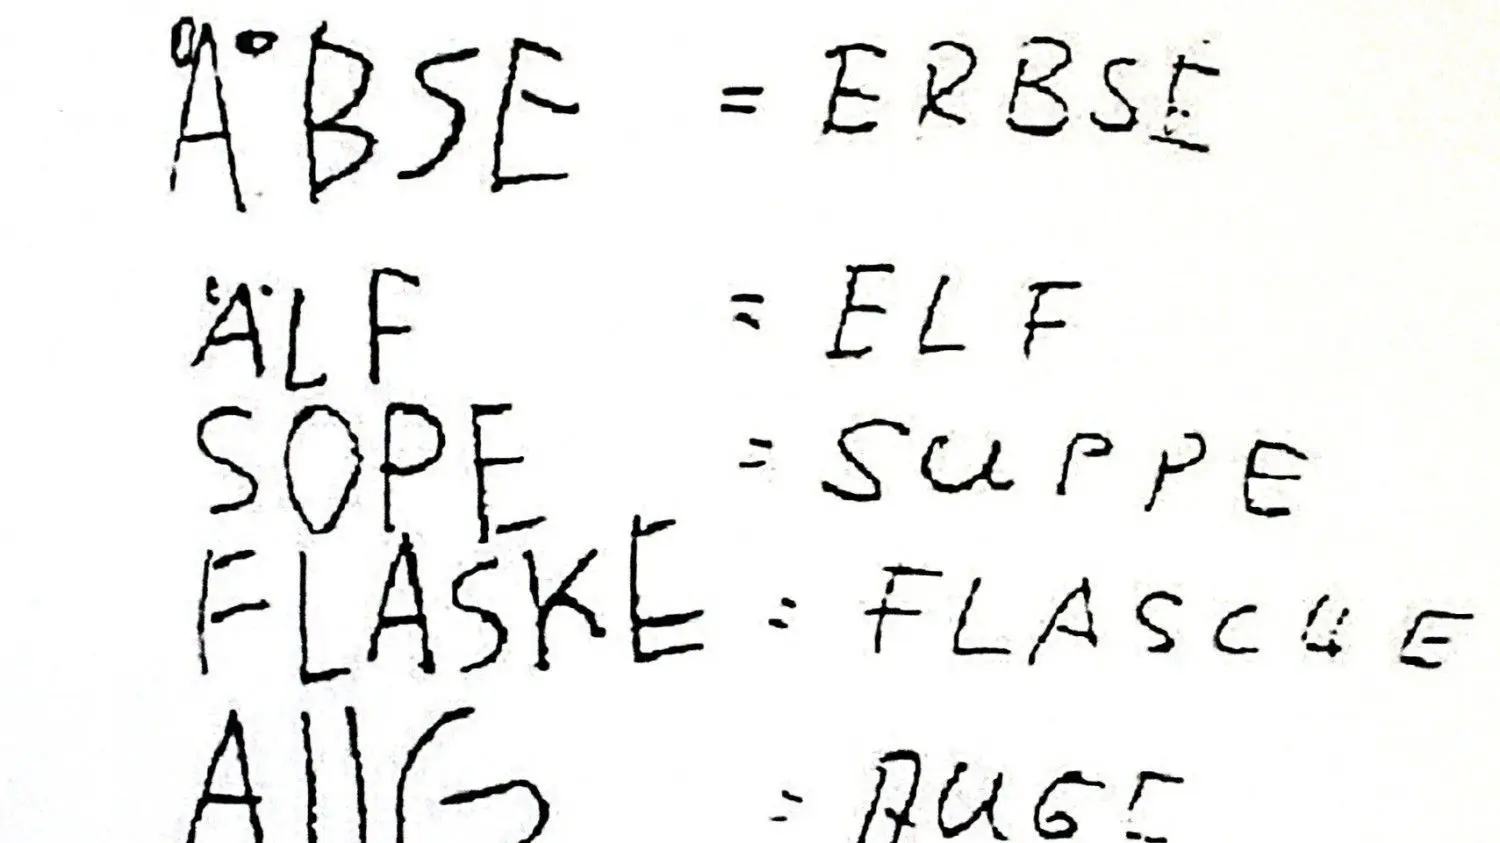 ÄBSE = ERBSE
ÄLF = ELF
SOPE = SUPPE
FLASKE = FLASCHE
AUG = AUGE